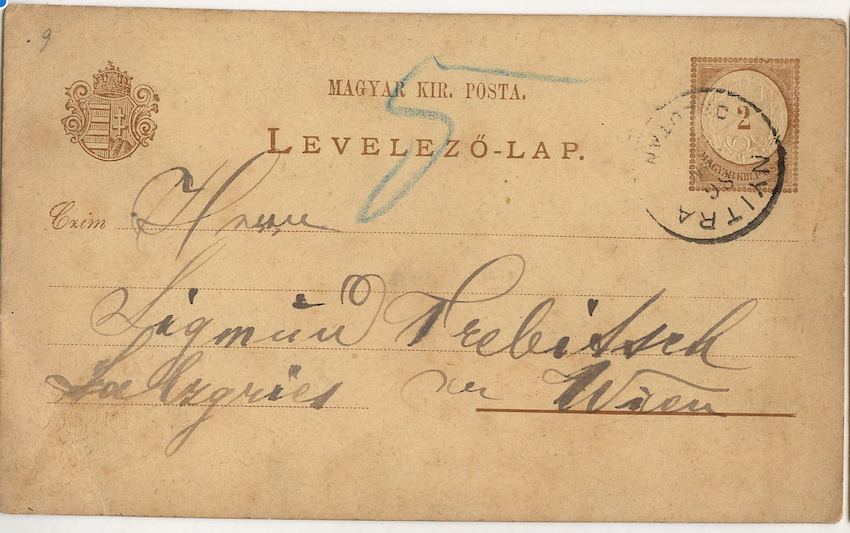 9
MAGYAR KIR. POSTA.
LEVELEZŐ-LAP.
5
2
MAGYAR KIR. P
NYITRA
Czim Herrn
Sigmund Trebitsch
Salzgries in Wien